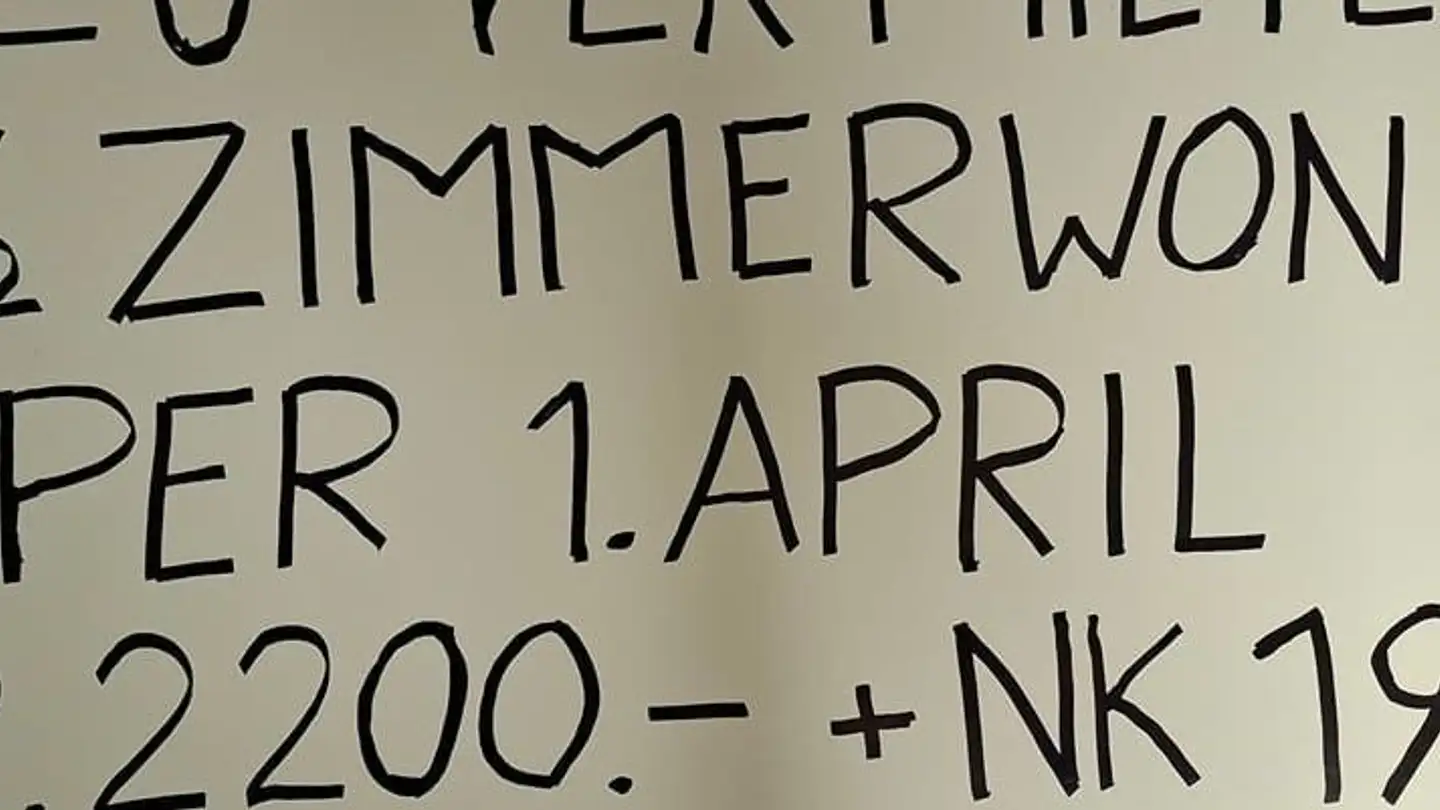 ZU VERMIETE
½ ZIMMERWON
PER 1. APRIL
.2200.– + NK 19